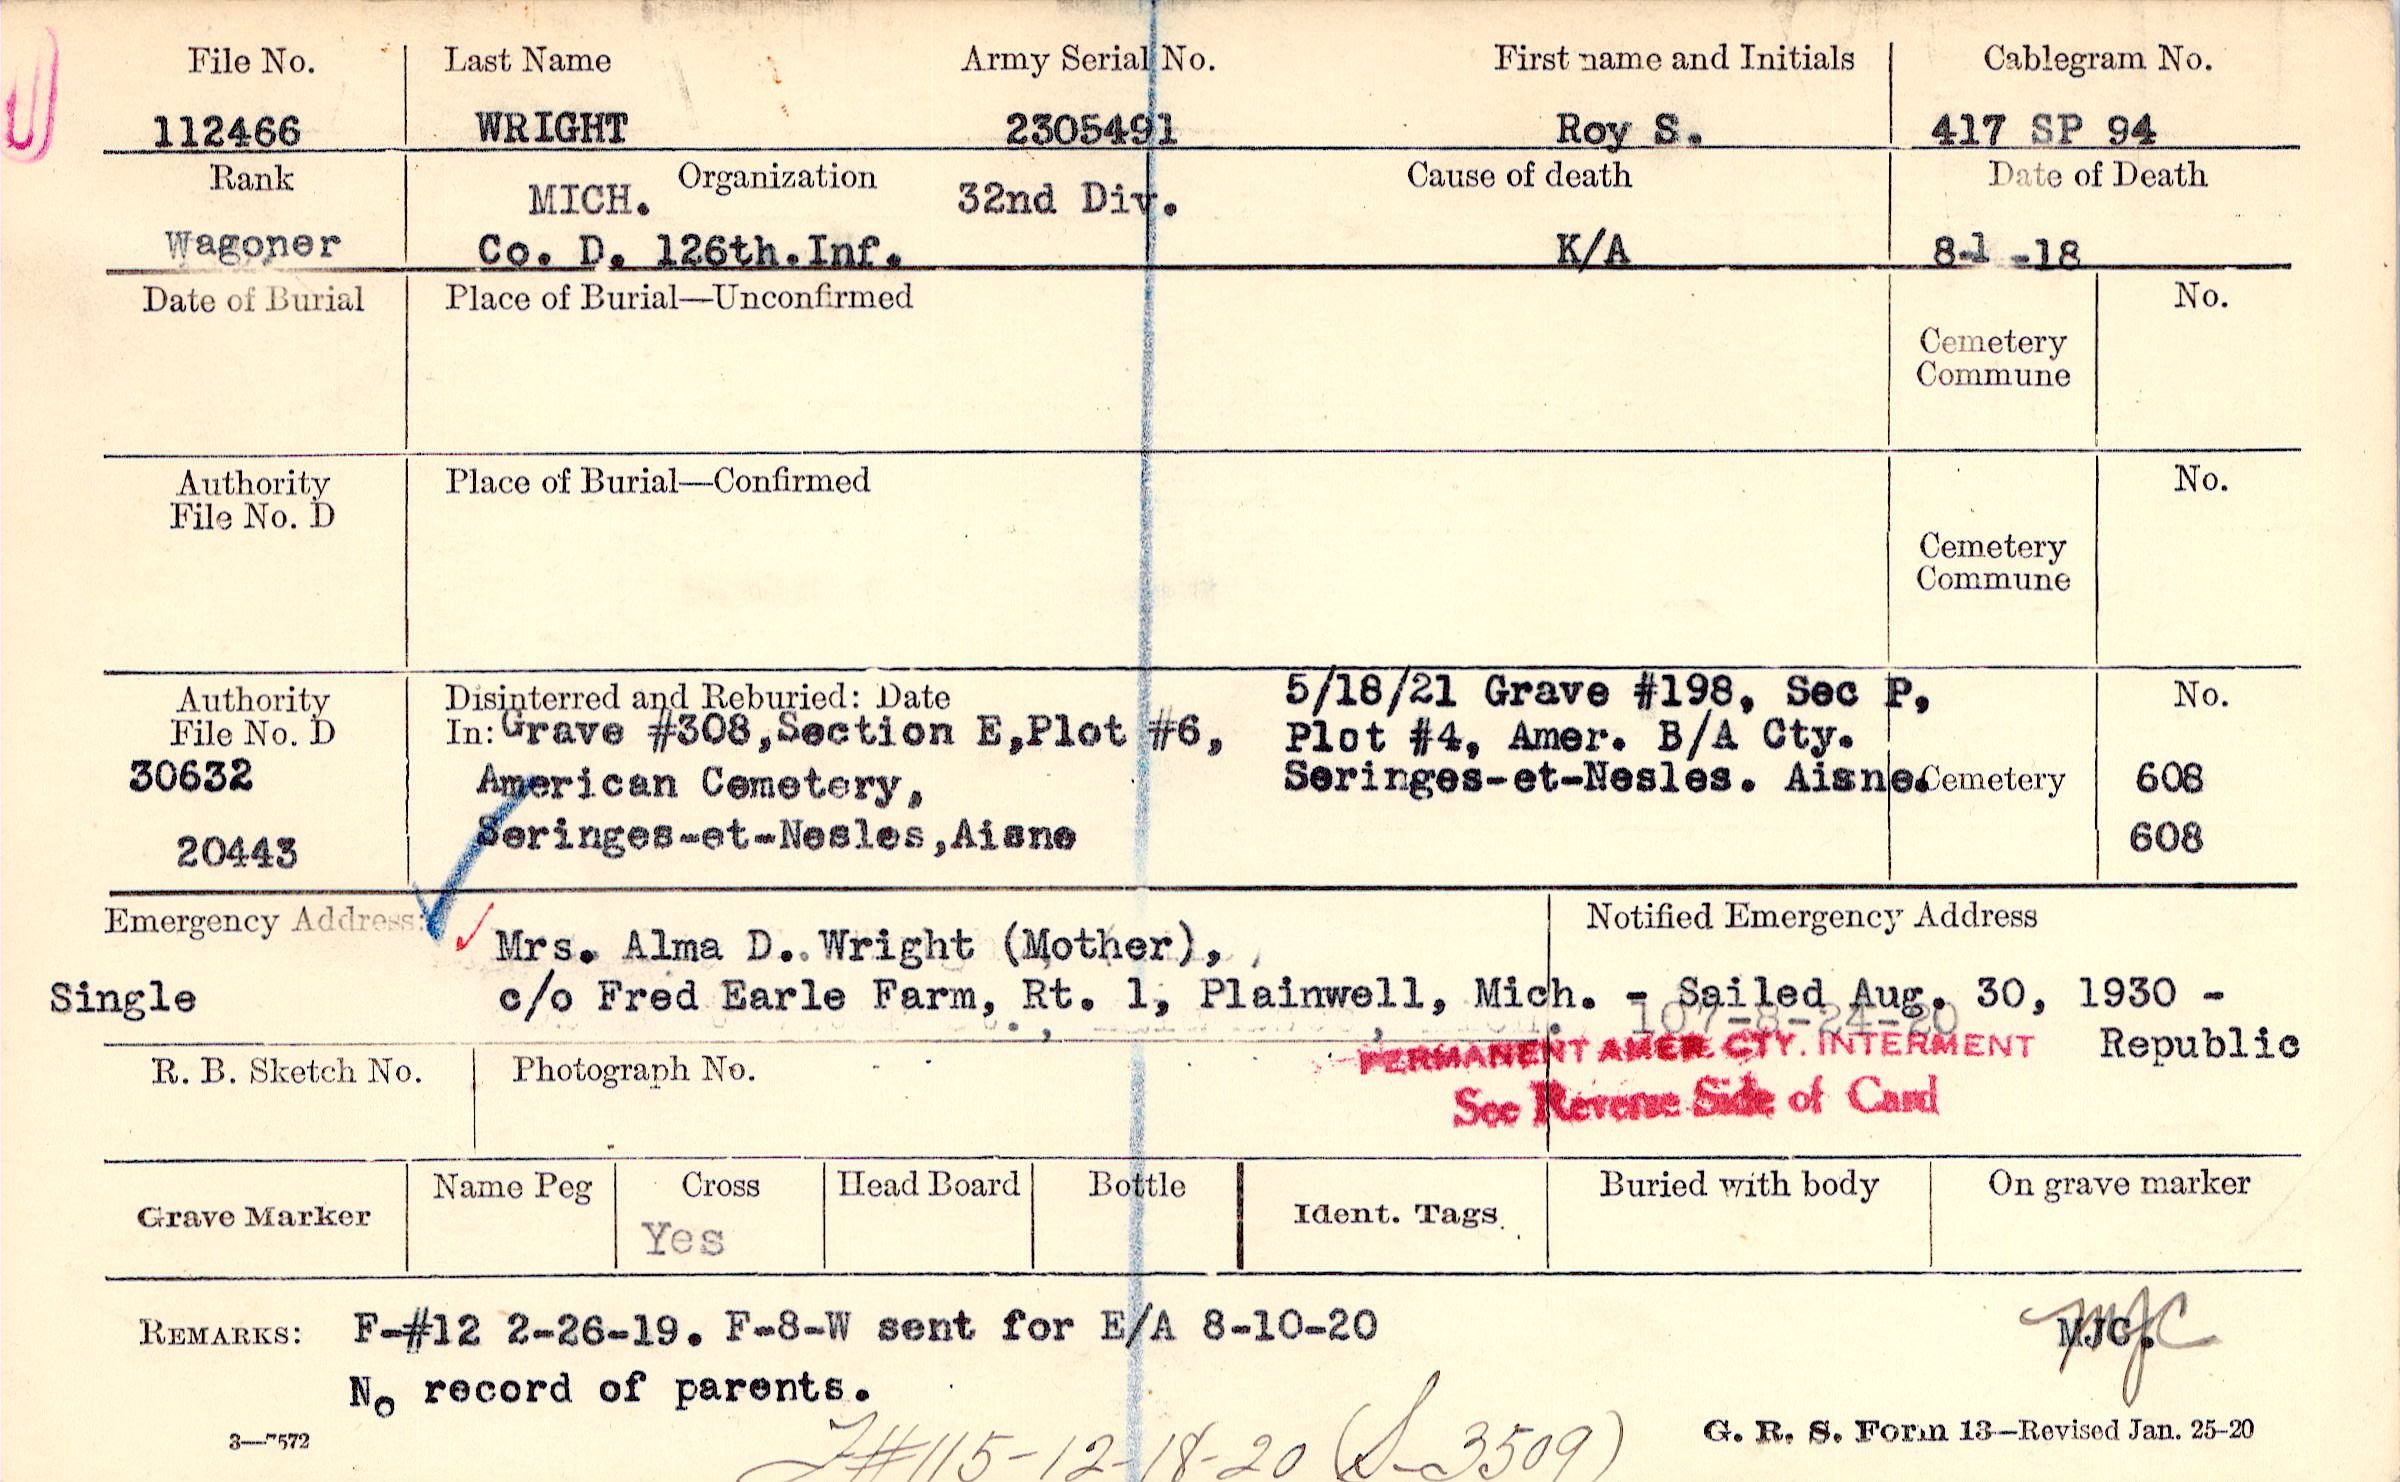 File No. Last Name Army Serial No. First name and Initials Cablegram No.
112466 WRIGHT 2305491 Roy S. 417 SP 94
Rank Organization Cause of death Date of Death
MICH. 32nd Div.
Wagoner Co. D. 126th.Inf. K/A 8-1 -18
Date of Burial Place of Burial—Unconfirmed No.
Cemetery
Commune
Authority Place of Burial—Confirmed No.
File No. D
Cemetery
Commune
Authority Disinterred and Reburied: Date 5/18/21 Grave #198, Sec P, No.
File No. D In: Grave #308,Section E,Plot #6, Plot #4, Amer. B/A Cty.
30632 American Cemetery, Seringes-et-Nesles. Aisne. Cemetery 608
20443 Seringes-et-Nesles,Aisne 608
Emergency Address: Notified Emergency Address
Mrs. Alma D. Wright (Mother),
Single c/o Fred Earle Farm, Rt. 1, Plainwell, Mich. - Sailed Aug. 30, 1930 -
107-8-24-20
PERMANENT AMER. CTY. INTERMENT Republic
R. B. Sketch No. Photograph No.
See Reverse Side of Card
Grave Marker Name Peg Cross Head Board Bottle Ident. Tags. Buried with body On grave marker
Yes
REMARKS: F-#12 2-26-19. F-8-W sent for E/A 8-10-20 MJC.
MJC
No record of parents.
F#115-12-18-20 (S-3509)
3—7572 G. R. S. Form 13—Revised Jan. 25-20